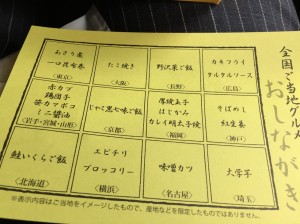 全国ご当地グルメ
おしながき
あさり煮
一口昆布巻
(東京)
たこ焼き
(大阪)
野沢菜ご飯
(長野)
カキフライ
タルタルソース
(広島)
赤カブ
鶏団子
笹カマボコ
ずんだ醤油
(岩手・宮城・山形)
じゃこ黒七味ご飯
(京都)
厚焼玉子
はじかみ
カレイ明太子焼
(福岡)
そばめし
紅生姜
(神戸)
鮭いくらご飯
(北海道)
エビチリ
ブロッコリー
(横浜)
味噌カツ
(名古屋)
大学芋
(埼玉)
※表示内容はご当地をイメージしたもので、産地などを限定したものではありません。